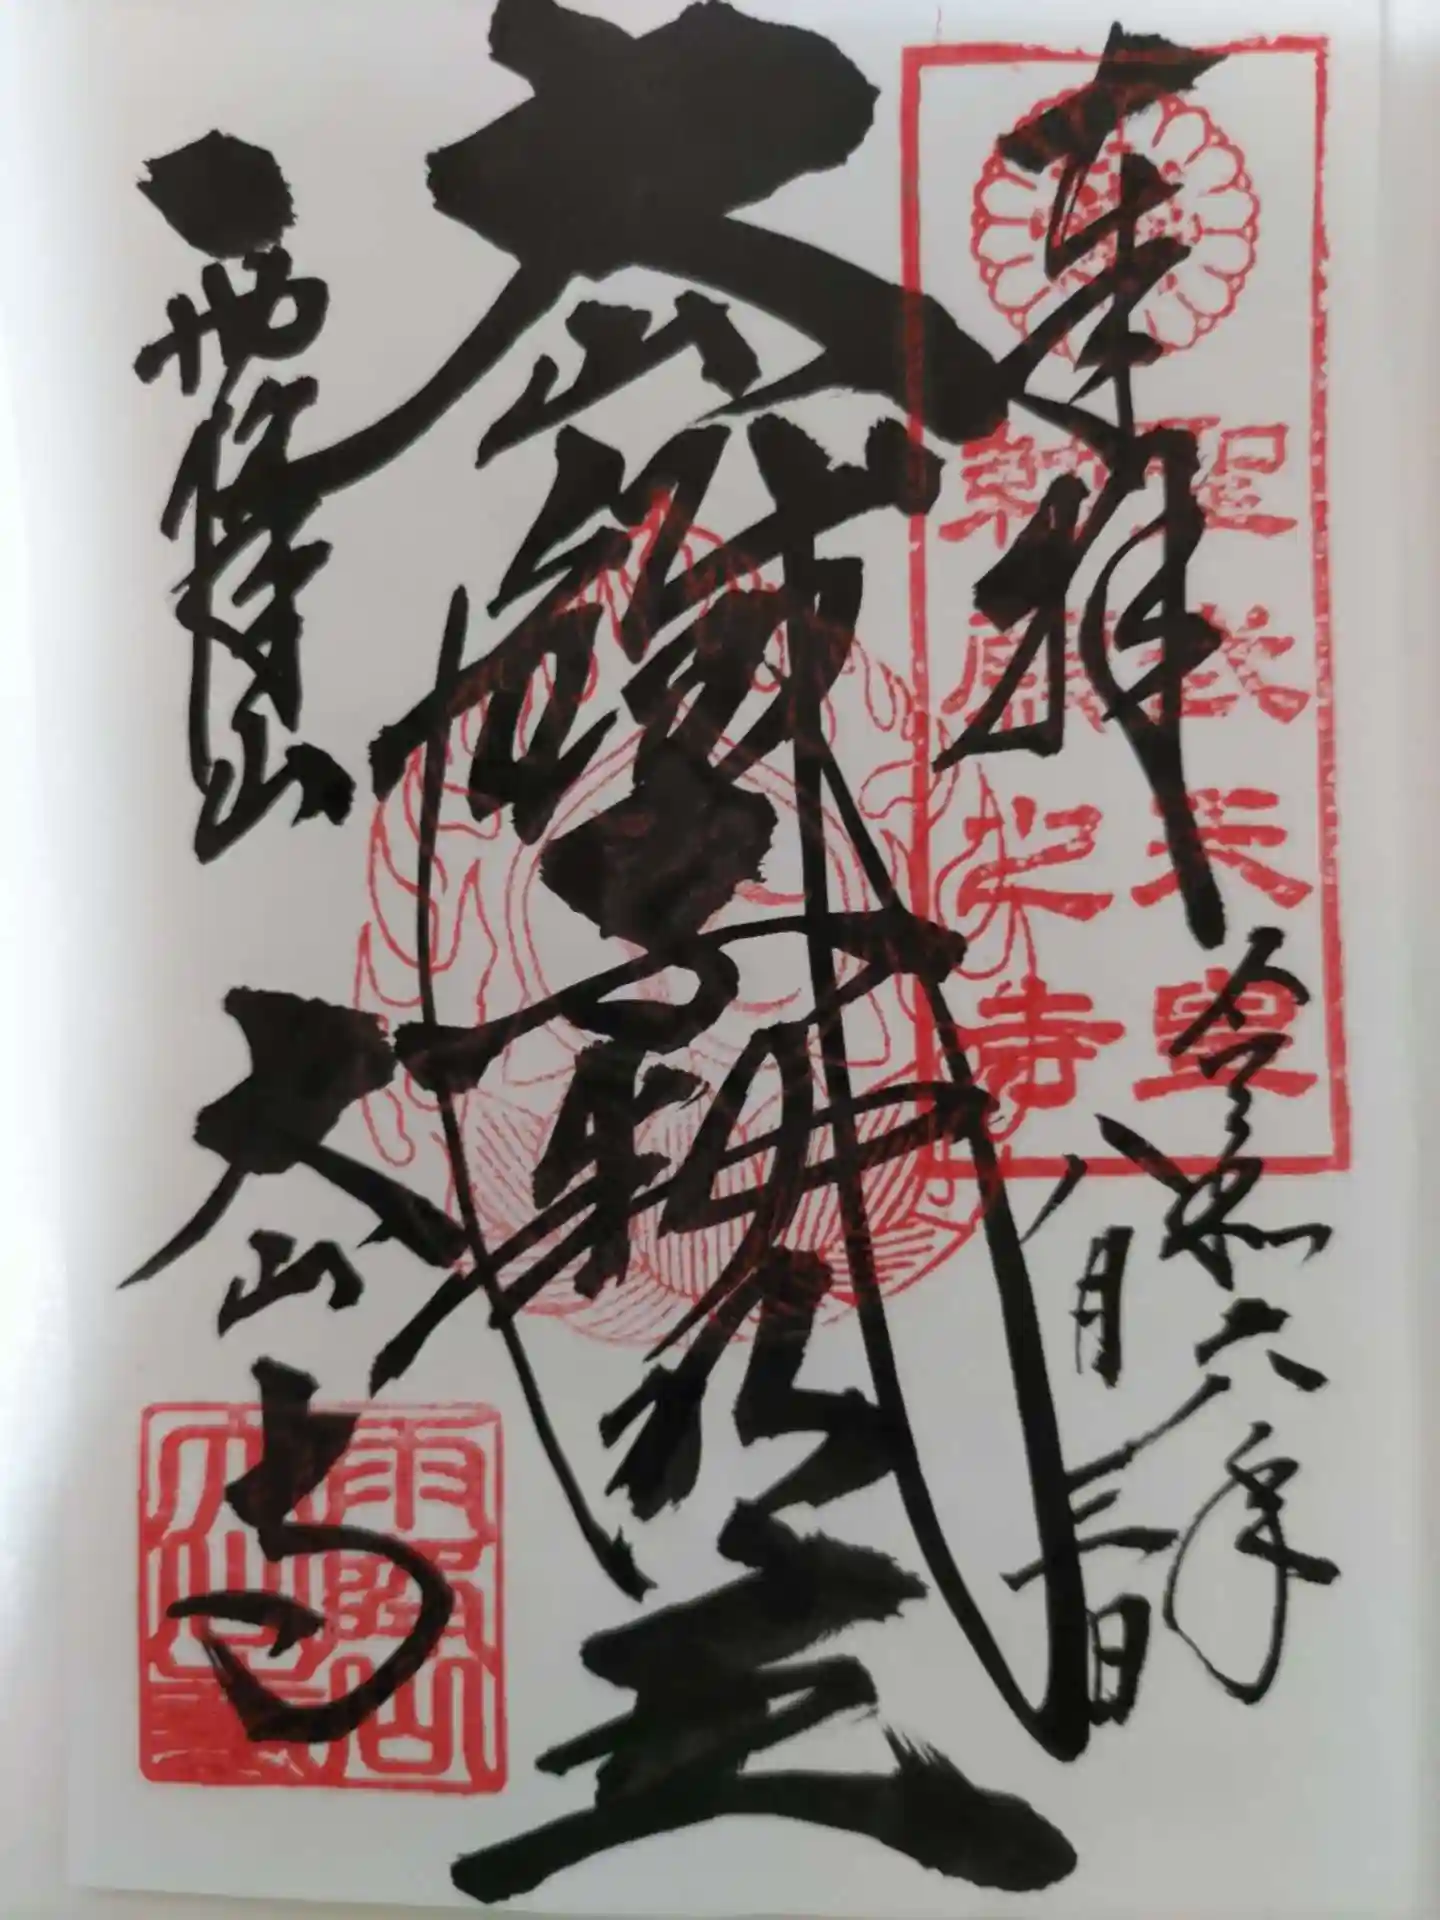 奉拝
令和六年
八月三日
聖武天皇
勅願之寺
大山
明王
雨降山
大山寺
雨降山
大山寺